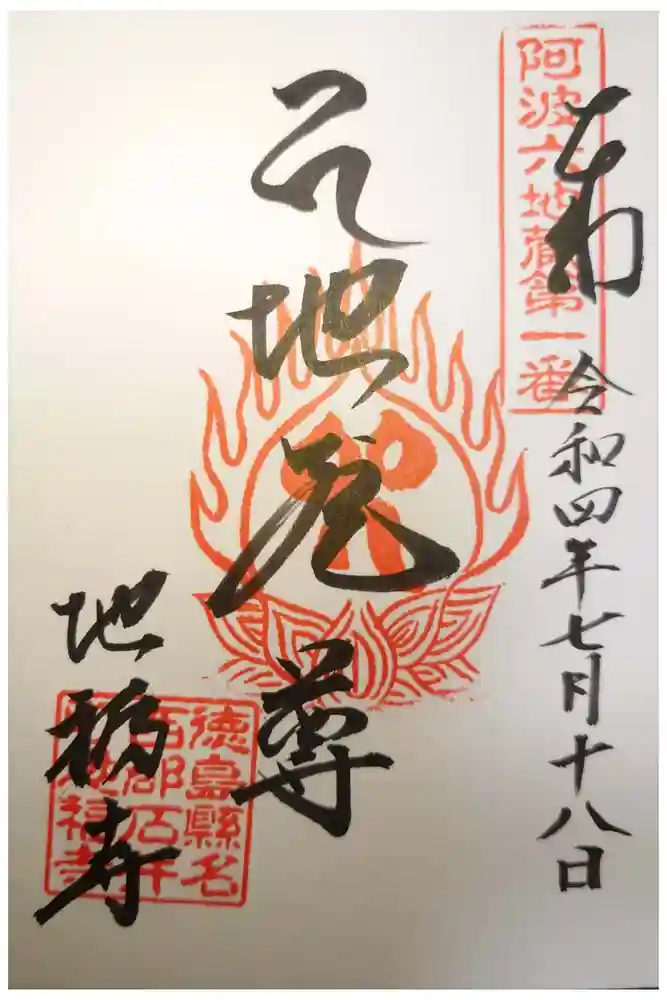 阿波六地蔵第一番
令和四年七月十八日
地蔵尊
地福寺
徳島縣名
西郡石井
地福寺